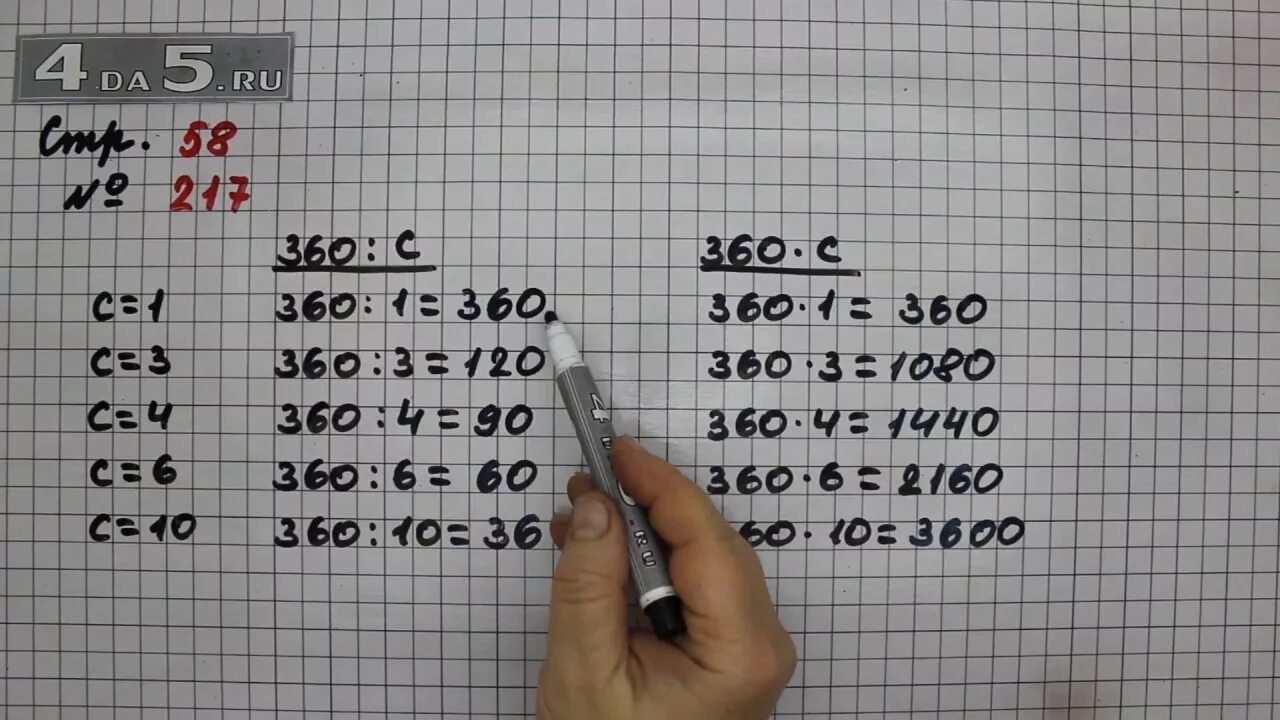 4DA5.RU
Стр. 58
№ 217
360 : с 360 · с
с=1 360 : 1 = 360 360 · 1 = 360
с=3 360 : 3 = 120 360 · 3 = 1080
с=4 360 : 4 = 90 360 · 4 = 1440
с=6 360 : 6 = 60 360 · 6 = 2160
с=10 360 : 10 = 36 60 · 10 = 3600